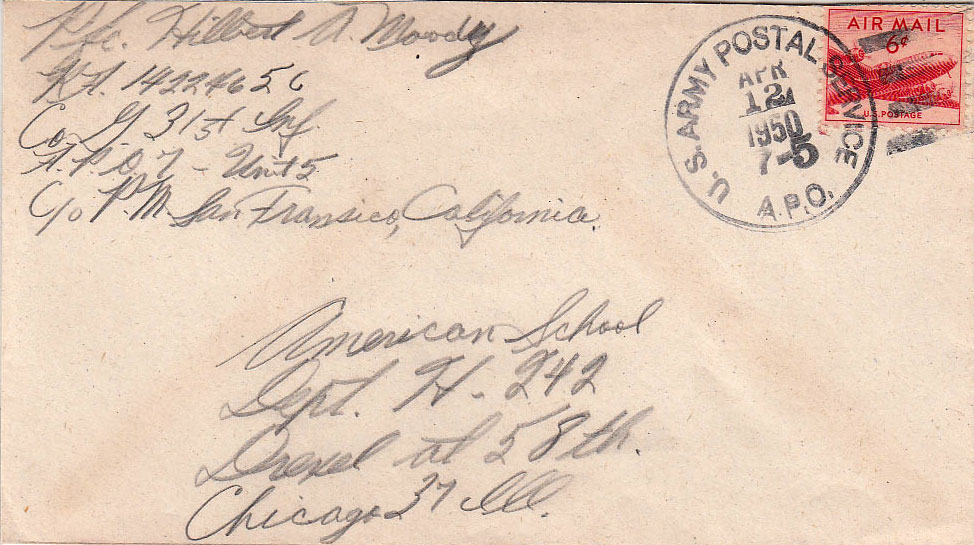 Pfc. Hilbert A. Moody
RA. 14224656
Co. G 31st Inf.
A.P.O. 7 - Unit 5
C/o P.M. San Fransico, California.
U.S. ARMY POSTAL SERVICE
APR
12
1950
7-5
A.P.O.
AIR MAIL
6¢
U.S. POSTAGE
American School
Dept. H. 242
Drexel at 58th.
Chicago 37 Ill.